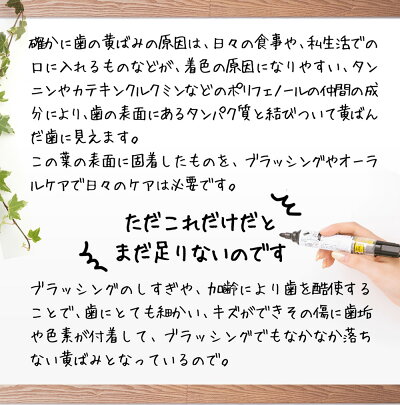 確かに歯の黄ばみの原因は、日々の食事や、私生活での
口に入れるものなどが、着色の原因になりやすい、タン
ニンやカテキンクルクミンなどのポリフェノールの仲間の成
分により、歯の表面にあるタンパク質と結びついて黄ばん
だ歯に見えます。
この葉の表面に固着したものを、ブラッシングやオーラ
ルケアで日々のケアは必要です。
ただこれだけだと
まだ足りないのです
ブラッシングのしすぎや、加齢により歯を酷使する
ことで、歯にとても細かい、キズができその傷に歯垢
や色素が付着して、ブラッシングでもなかなか落ち
ない黄ばみとなっているので。